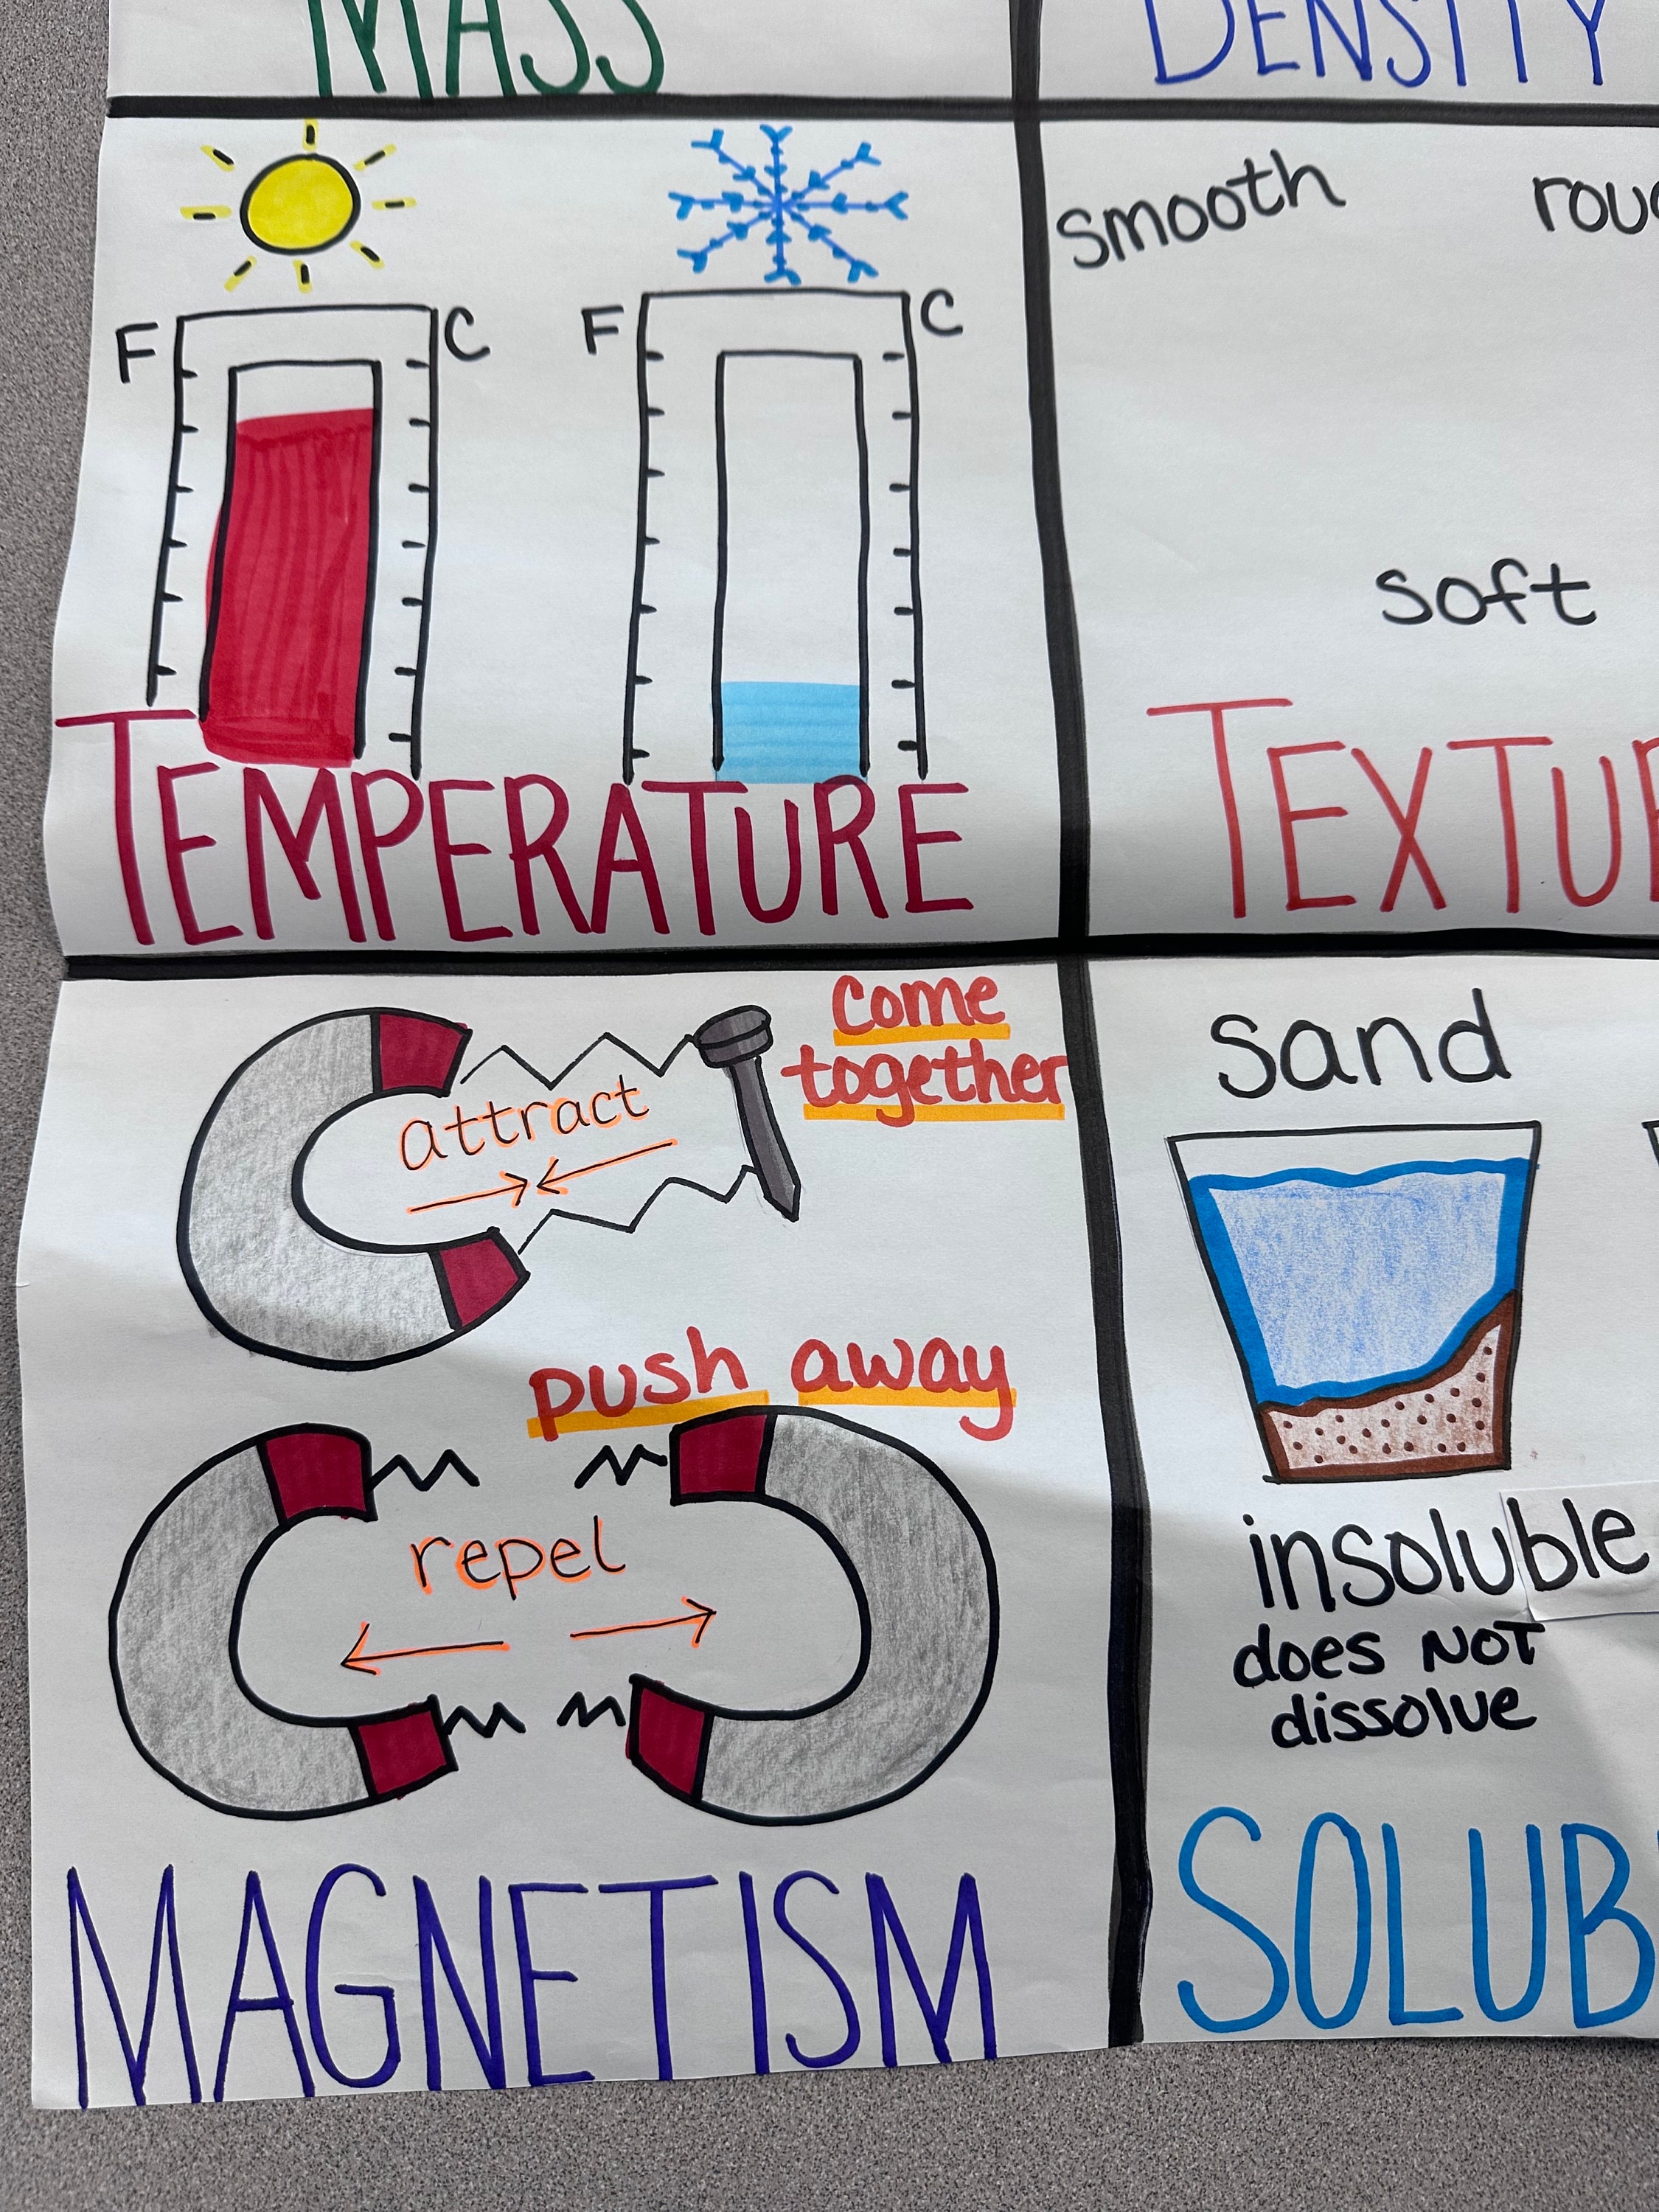 MASS
DENSITY
F
C
F
C
TEMPERATURE
smooth
soft
come
together
attract
push away
repel
MAGNETISM
sand
insoluble
does NOT
dissolve